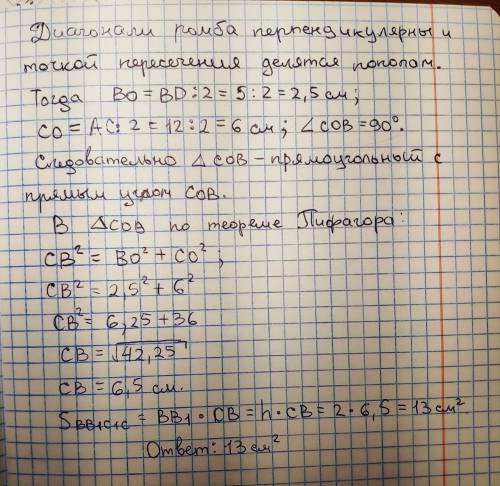 Диагонали ромба перпендикулярны и
точкой пересечения делятся попопам.
Тогда BO = BD : 2 = 5 : 2 = 2,5 см;
CO = AC : 2 = 12 : 2 = 6 см; ∠COB = 90°.
Следовательно △COB - прямоугольный с
прямым углом COB.
В △COB по теореме Пифагора:
CB² = BO² + CO²;
CB² = 2,5² + 6²
CB² = 6,25 + 36
CB = √42,25
CB = 6,5 см.
S_BB1C1C = BB1 · CB = h · CB = 2 · 6,5 = 13 см²
Ответ: 13 см²